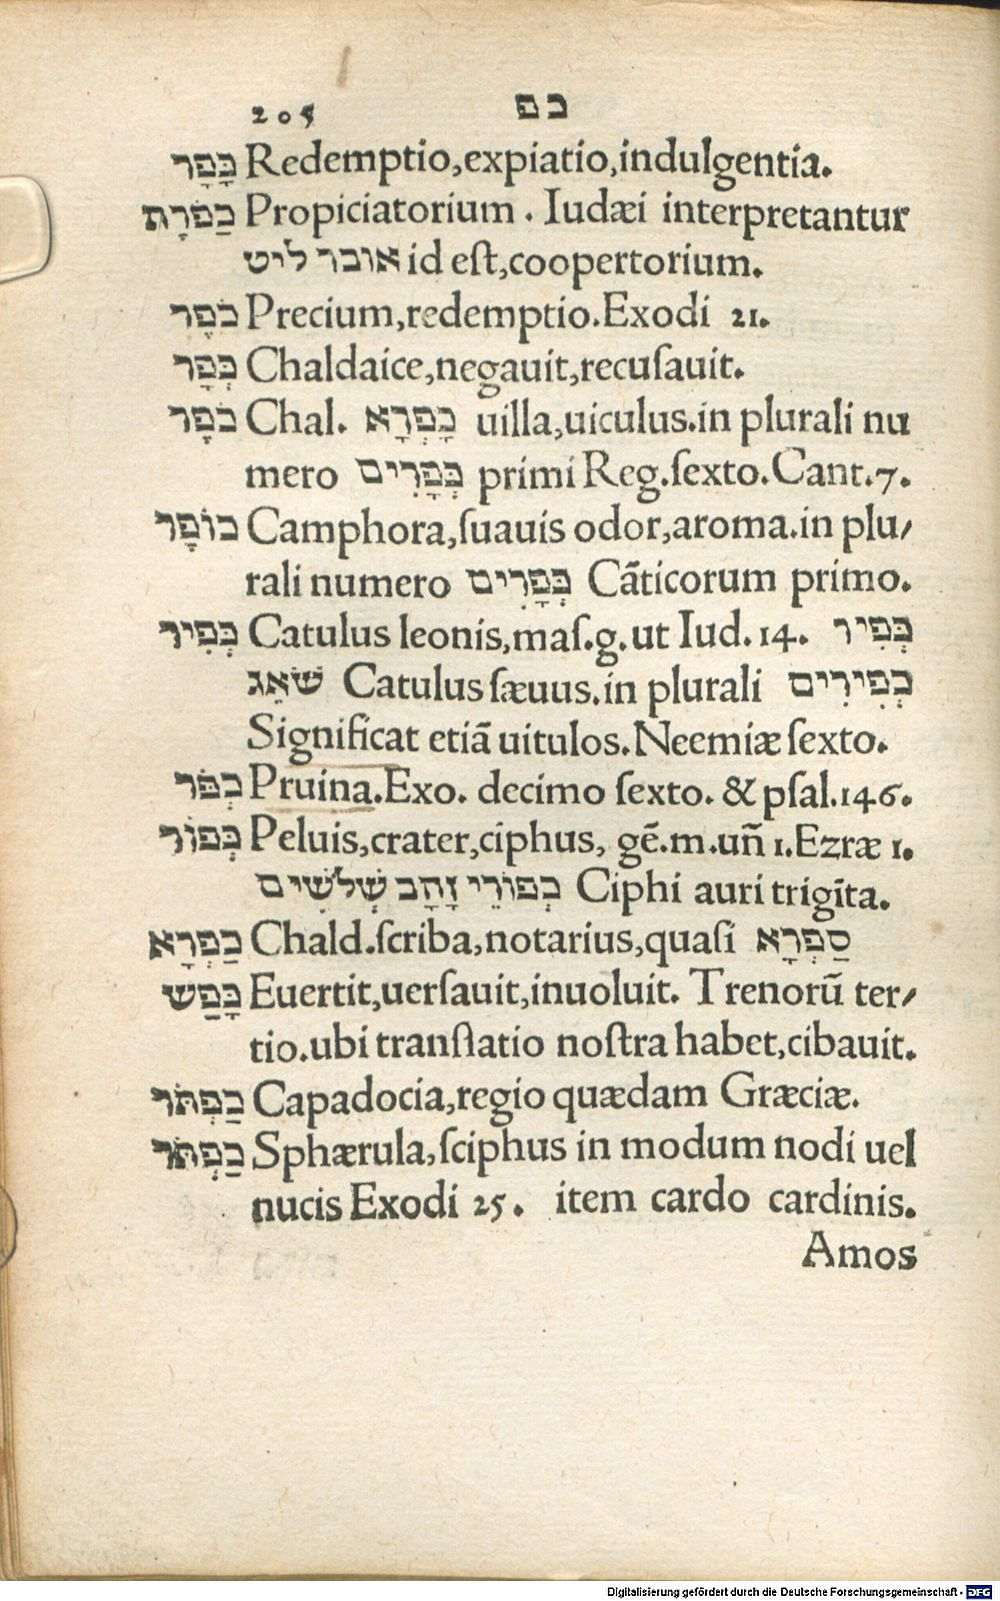 205 כפ
כָּפָר Redemptio,expiatio,indulgentia.
כַּפֹּרֶת Propiciatorium . Iudæi interpretantur
אובר ליט id eſt,coopertorium.
כֹּפֶר Precium,redemptio.Exodi 21.
כְּפָר Chaldaice,negauit,recuſauit.
כֹּפָר Chal. כָּפְרָא uilla,uiculus.in plurali nu
mero כְּפָרִים primi Reg.ſexto.Cant.7.
כוֹפֶר Camphora,ſuauis odor,aroma.in plu/
rali numero כְּפָרִים Cāticorum primo.
כְּפִיר Catulus leonis,maſ.g.ut Iud.14. כְּפִיר
שֹׁאֵג Catulus ſæuus.in plurali כְּפִירִים
Significat etiā uitulos.Neemiæ ſexto.
כְּפֹר Pruina.Exo. decimo ſexto. & pſal.146.
כְּפוֹר Peluis,crater,ciphus, gē.m.un̄ 1.Ezræ 1.
כְּפוֹרֵי זָהָב שְׁלֹשִׁים Ciphi auri trigīta.
כַּפְרָא Chald.ſcriba,notarius,quaſi סַפְרָא
כָּפַשׁ Euertit,uerſauit,inuoluit. Trenorū ter/
tio.ubi tranſlatio noſtra habet,cibauit.
כַּפְתֹּר Capadocia,regio quædam Græciæ.
כַּפְתֹּר Sphærula,ſciphus in modum nodi uel
nucis Exodi 25. item cardo cardinis.
Amos
Digitalisierung gefördert durch die Deutsche Forschungsgemeinschaft - DFG